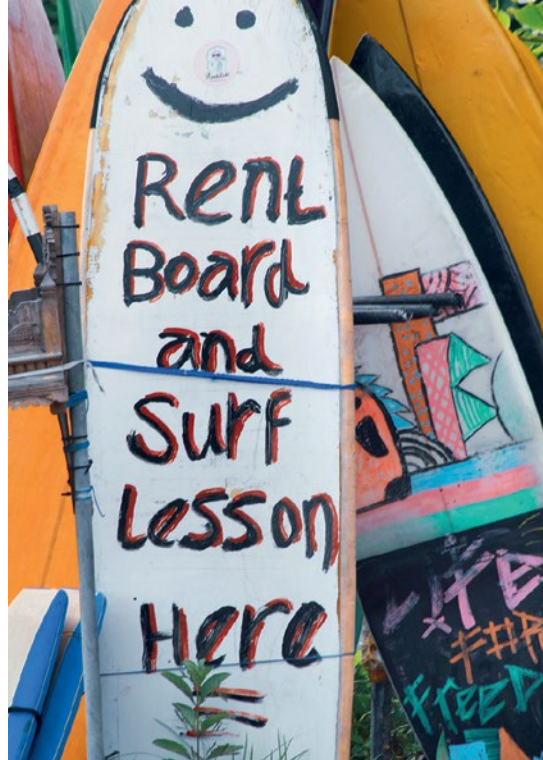 Rent
Board
and
Surf
Lesson
Here
LIFE
FOR